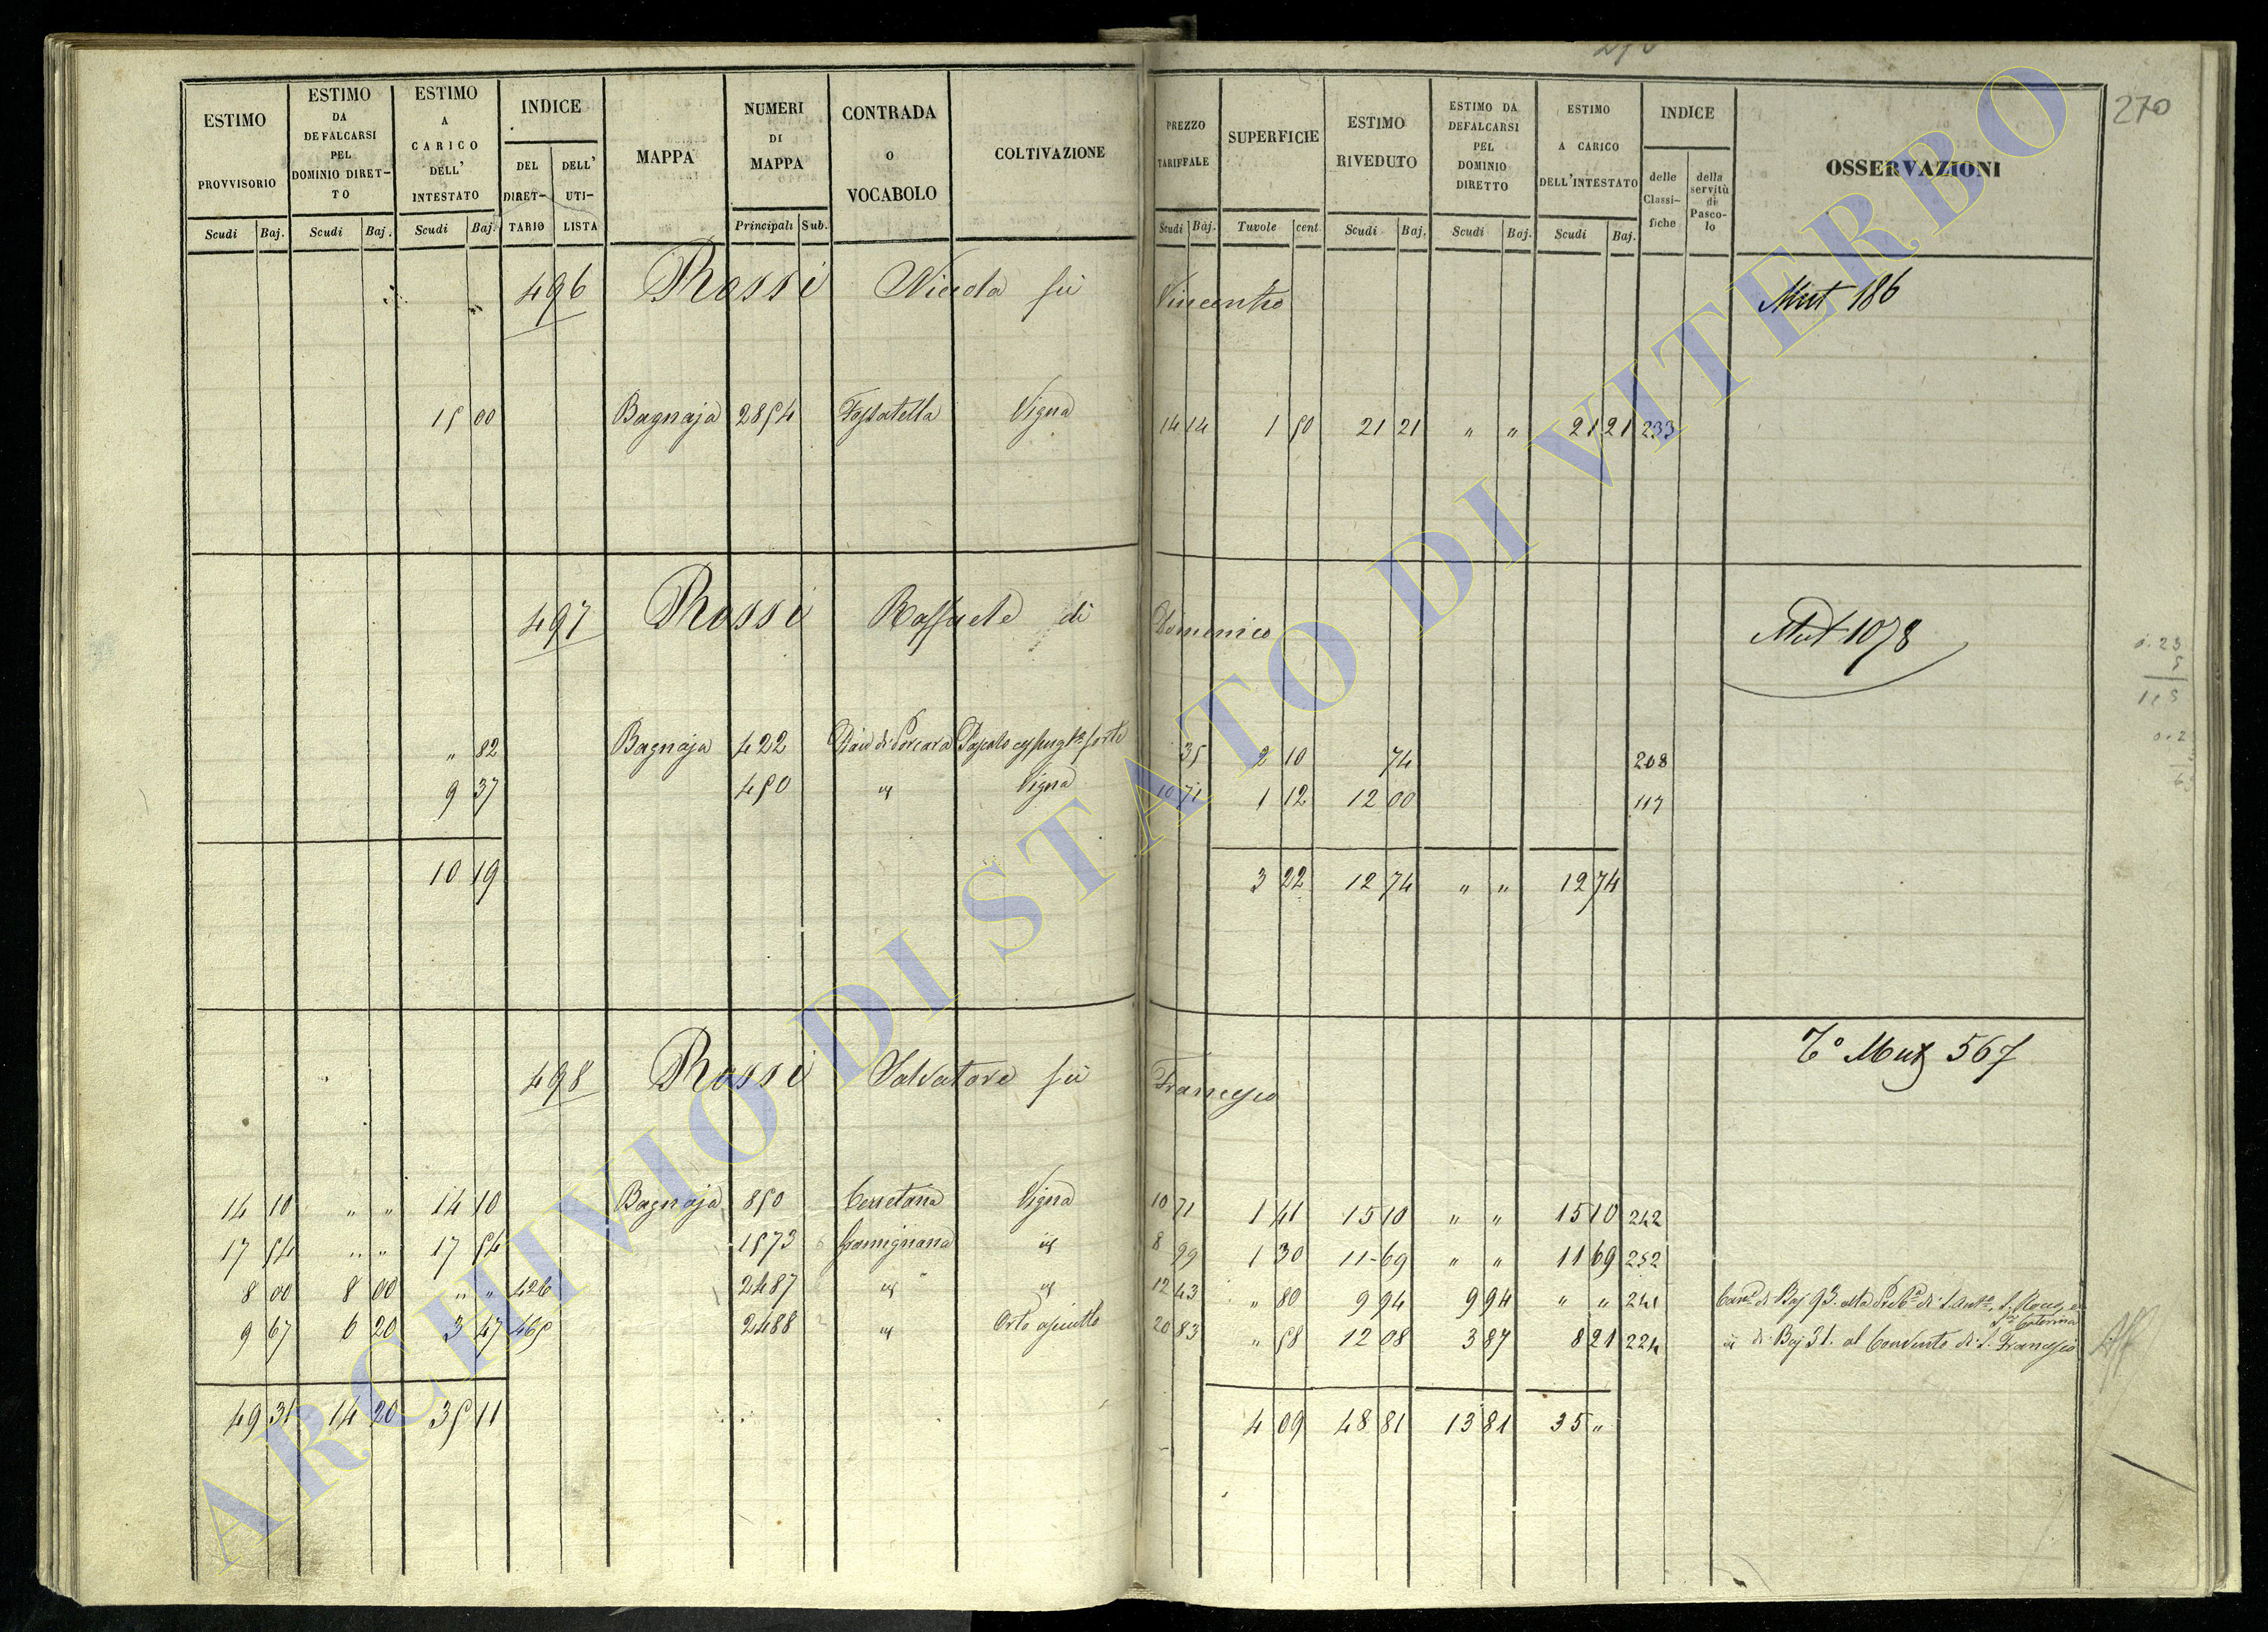 270
ESTIMO PROVVISORIO
ESTIMO DA DEFALCARSI PEL DOMINIO DIRET-TO
ESTIMO A CARICO DELL' INTESTATO
INDICE
DEL DIRET-TARIO
DELL' UTI-LISTA
MAPPA
NUMERI DI MAPPA
CONTRADA O VOCABOLO
COLTIVAZIONE
PREZZO TARIFFALE
SUPERFICIE
ESTIMO RIVEDUTO
ESTIMO DA DEFALCARSI PEL DOMINIO DIRETTO
ESTIMO A CARICO DELL'INTESTATO
INDICE
delle Classi-fiche
della servitù di Pasco-lo
OSSERVAZIONI
Scudi Baj. Scudi Baj. Scudi Baj. Principali Sub. Scudi Baj. Tavole cent. Scudi Baj. Scudi Baj. Scudi Baj.
496 Rossi Nicola fù Vincenzo Mut 186
15 00 Bagnaja 2854 Vigna 14 14 1 50 21 21 " " 21 21 233
497 Rossi Raffaele di Domenico Mut 1078
" 82 Bagnaja 422 Pian di Porcara Pascolo forte 35 2 10 74 208
9 37 450 id Vigna 10 71 1 12 12 00 117
10 19 3 22 12 74 " " 12 74
498 Rossi Salvatore fù Francesco Mut 567
14 10 " " 14 10 Bagnaja 850 Cerretana Vigna 10 71 1 41 15 10 " " 15 10 242
17 54 " " 17 54 1573 Gramignana id 8 99 1 30 11-69 " " 11 69 252
8 00 8 00 " " 426 2487 id id 12 43 " 80 9 94 9 94 " " 241 di Baj 93. alla di S. Ant°, S. Rocco, e
S. Caterina
9 67 6 20 3 47 465 2488 id Orto asciutto 20 83 " 58 12 08 3 87 8 21 224 id di Baj 31. al Convento di S. Francesco
49 31 14 20 35 11 4 09 48 81 13 81 35 "
ARCHIVIO DI STATO DI VITERBO